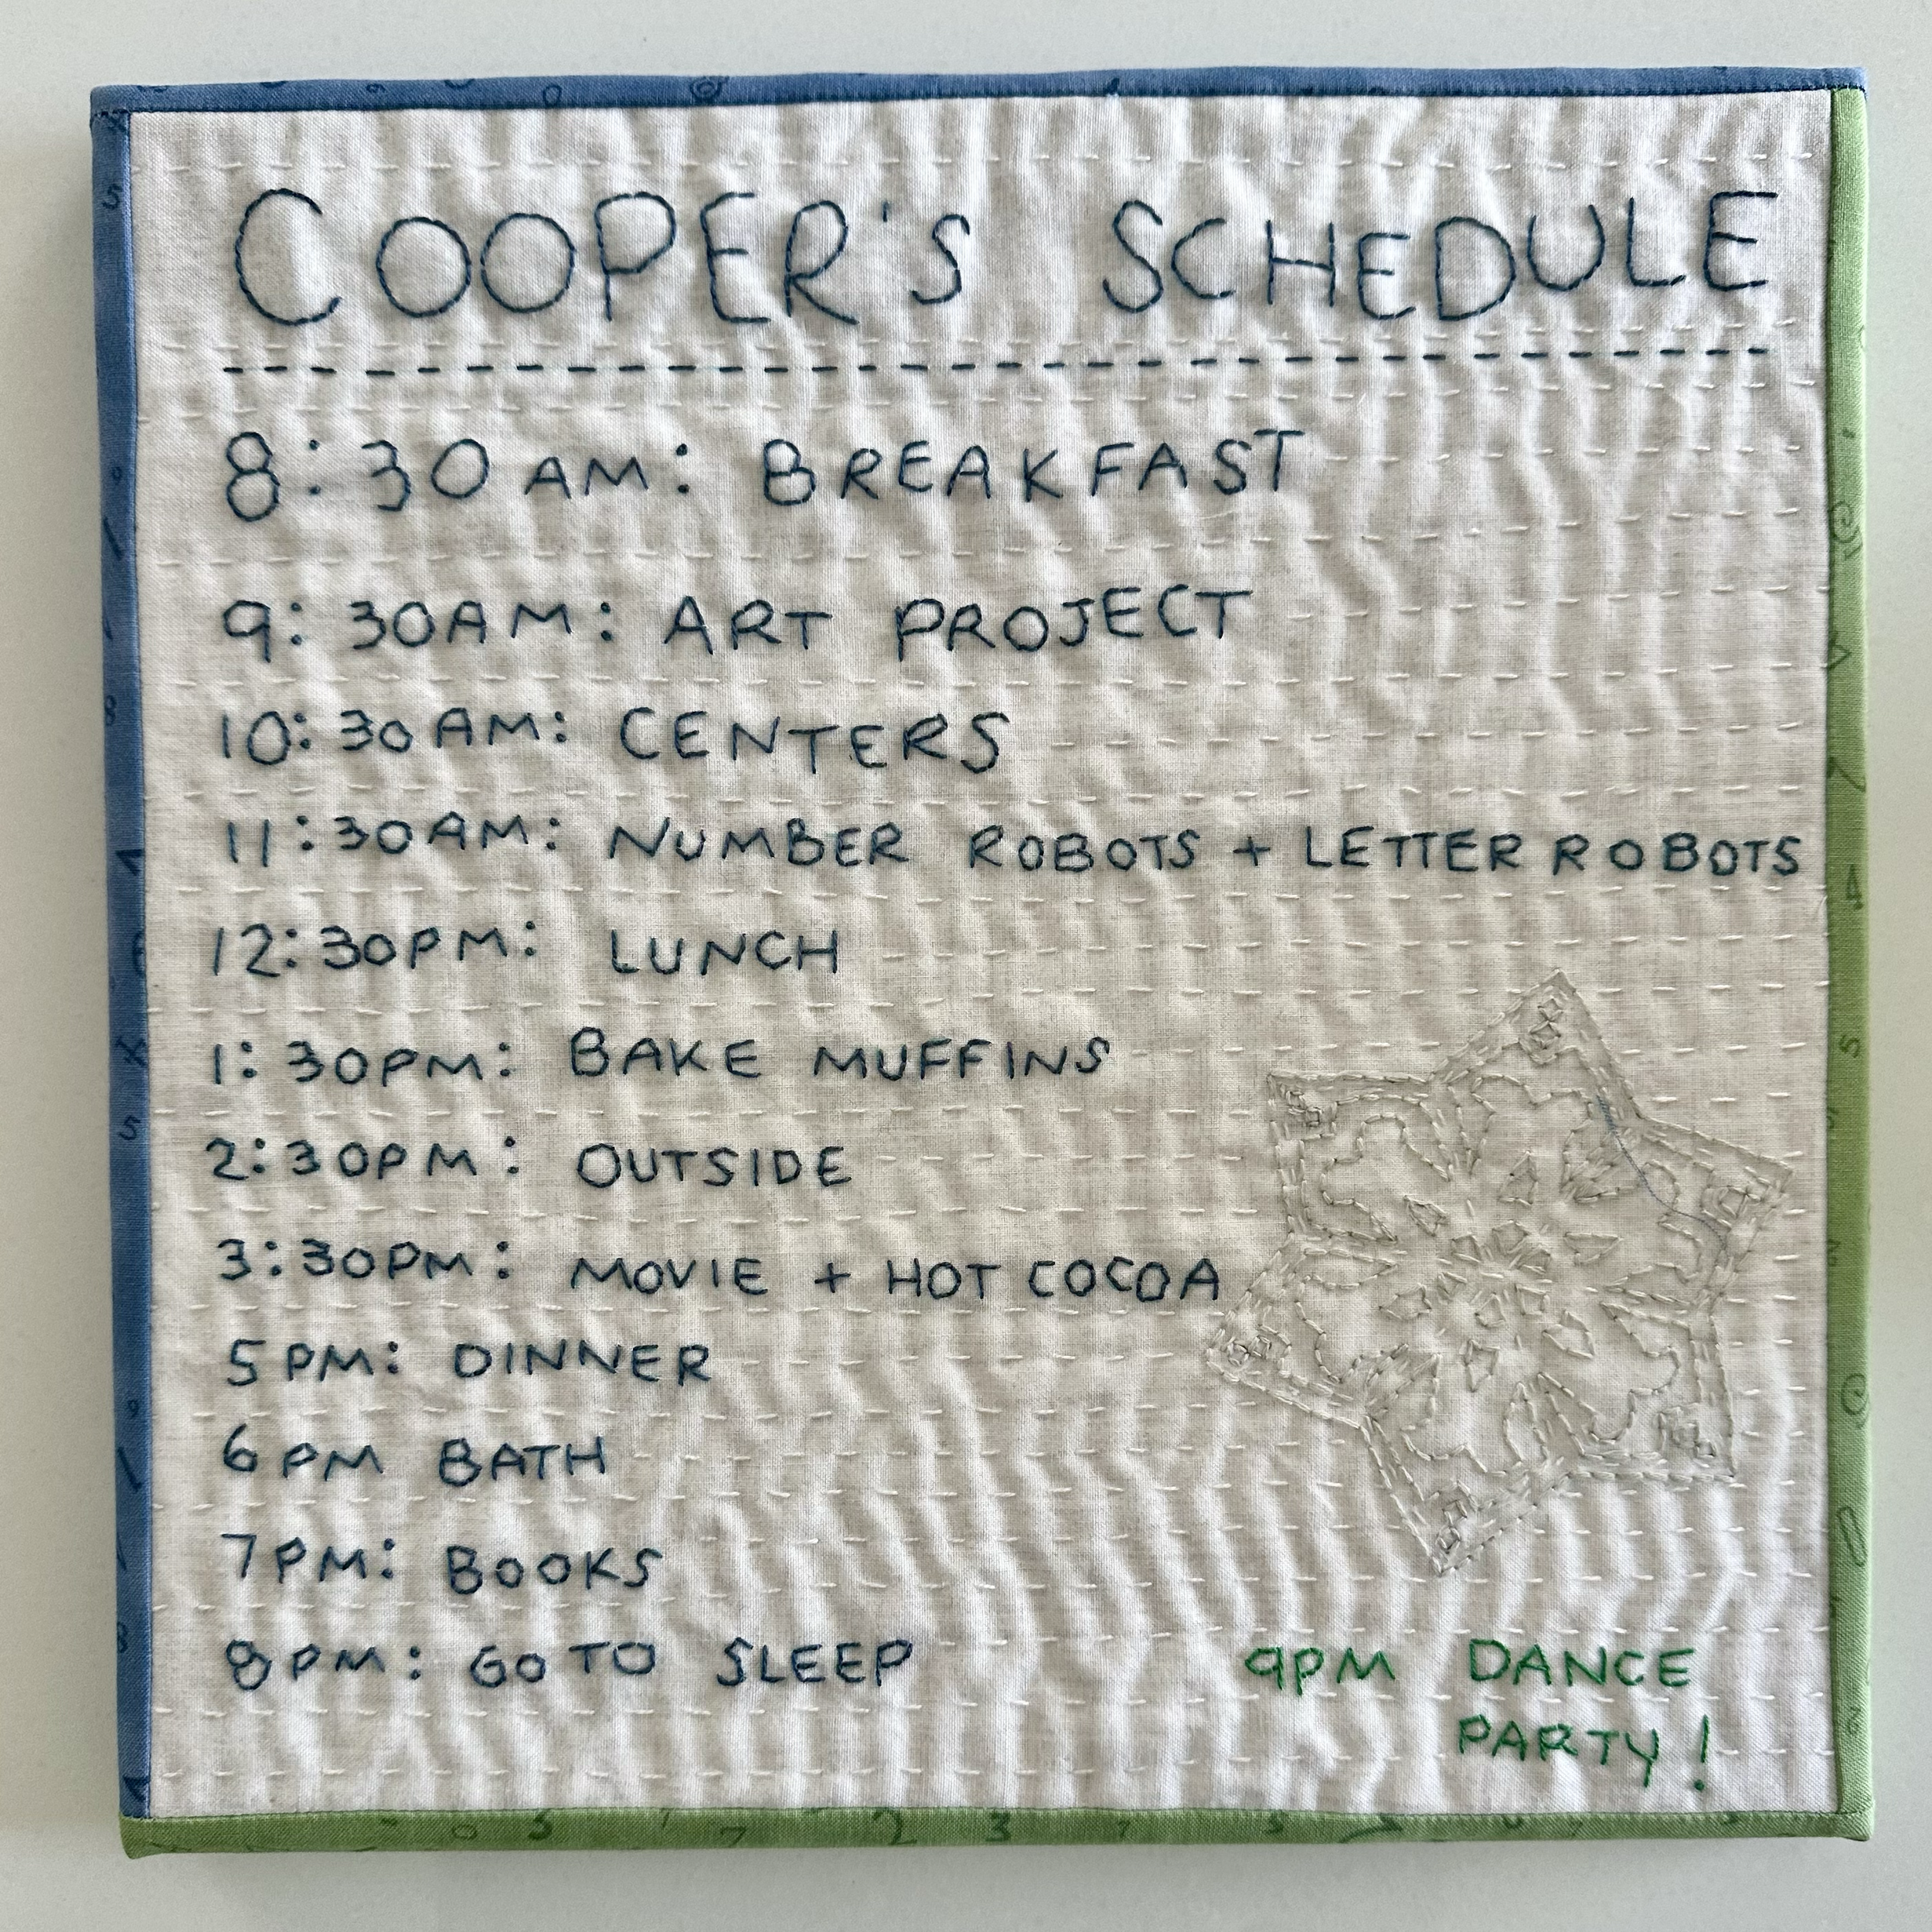 COOPER'S SCHEDULE
8:30AM: BREAKFAST
9:30AM: ART PROJECT
10:30AM: CENTERS
11:30AM: NUMBER ROBOTS + LETTER ROBOTS
12:30PM: LUNCH
1:30PM: BAKE MUFFINS
2:30PM: OUTSIDE
3:30PM: MOVIE + HOT COCOA
5PM: DINNER
6PM BATH
7PM: BOOKS
8PM: GO TO SLEEP
9PM DANCE
PARTY!